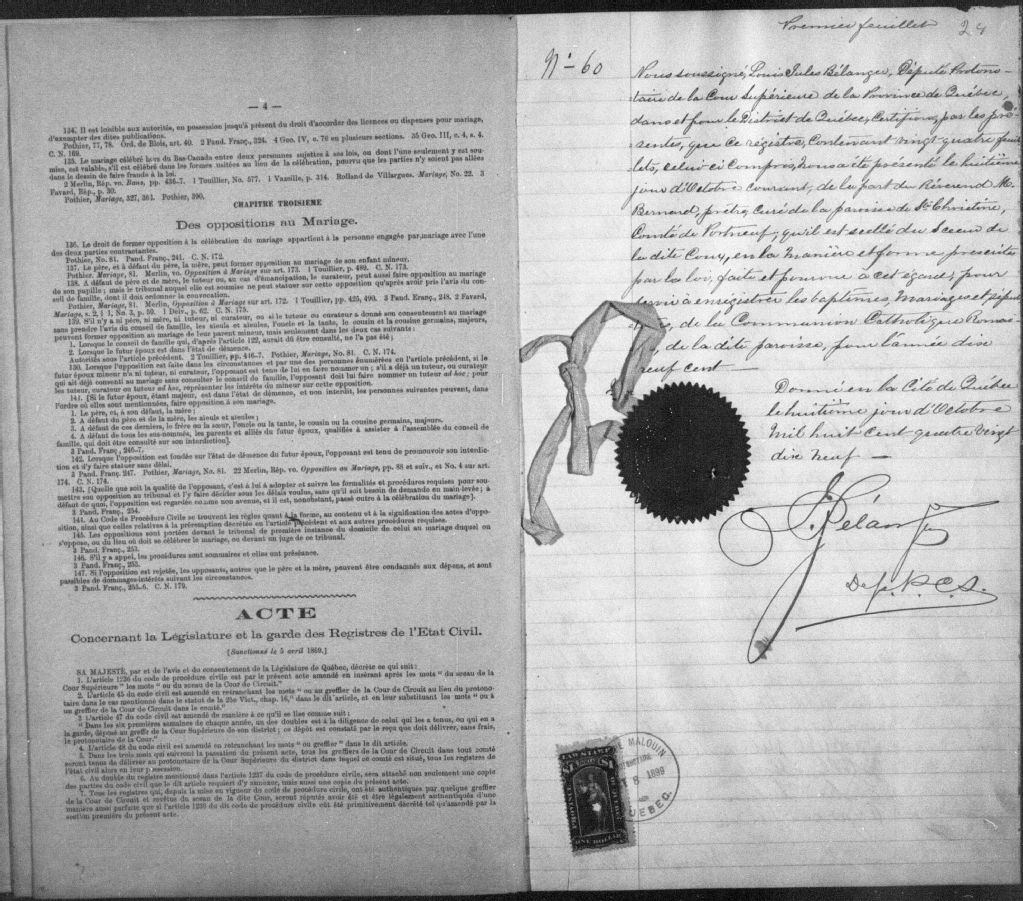 — 4 —
134. Il est loisible aux autorités, en possession jusqu'à présent du droit d'accorder des licences ou dispenses pour mariage,
d'exempter des dites publications.
Pothier, 77, 78. Ord. de Blois, art. 40. 2 Pand. Franç., 324. 4 Geo. IV, c. 76 en plusieurs sections. 35 Geo. III, c. 4, s. 4.
C. N. 169.
135. Le mariage célébré hors du Bas-Canada entre deux personnes sujettes à ses lois, ou dont l'une seulement y est sou-
mise, est valable, s'il est célébré dans les formes usitées au lieu de la célébration, pourvu que les parties n'y soient pas allées
dans le dessein de faire fraude à la loi.
2 Merlin, Rép. vo. Bans, pp. 436-7. 1 Touillier, No. 577. 1 Vazeille, p. 314. Rolland de Villargues. Mariage, No. 22. 3
Favard, Rép., p. 30.
Pothier, Mariage, 327, 361. Pothier, 390.
CHAPITRE TROISIEME
Des oppositions au Mariage.
136. Le droit de former opposition à la célébration du mariage appartient à la personne engagée par mariage avec l'une
des deux parties contractantes.
Pothier, No. 81. Pand. Franç., 241. C. N. 172.
137. Le père, et à défaut du père, la mère, peut former opposition au mariage de son enfant mineur.
Pothier. Mariage, 81. Merlin, vo. Opposition à Mariage sur art. 173. 1 Touillier, p. 489. C. N. 173.
138. A défaut de père et de mère, le tuteur ou, au cas d'émancipation, le curateur, peut aussi faire opposition au mariage
de son pupille; mais le tribunal auquel elle est soumise ne peut statuer sur cette opposition qu'après avoir pris l'avis du con-
seil de famille, dont il doit ordonner la convocation.
Pothier, Mariage, 81. Merlin, Opposition à Mariage sur art. 172. 1 Touillier, pp. 425, 490. 3 Pand. Franç., 248. 2 Favard,
Mariage, s. 2, § 1, No. 3, p. 59. 1 Delv., p. 62. C. N. 175.
139. S'il n'y a ni père, ni mère, ni tuteur, ni curateur, ou si le tuteur ou curateur a donné son consentement au mariage
sans prendre l'avis du conseil de famille, les aïeuls et aïeules, l'oncle et la tante, le cousin et la cousine germains, majeurs,
peuvent former opposition au mariage de leur parent mineur, mais seulement dans les deux cas suivants:
1. Lorsque le conseil de famille qui, d'après l'article 122, aurait dû être consulté, ne l'a pas été;
2. Lorsque le futur époux est dans l'état de démence.
Autorités sous l'article précédent. 2 Touillier, pp. 416-7. Pothier, Mariage, No. 81. C. N. 174.
Lorsque l'opposition est faite dans les circonstances et par une des personnes énumérées en l'article précédent, si le
futur époux mineur n'a ni tuteur, ni curateur, l'opposant est tenu de lui en faire nommer un; s'il a déjà un tuteur, ou curateur
qui ait déjà consenti au mariage sans consulter le conseil de famille, l'opposant doit lui faire nommer un tuteur ad hoc; pour
les tuteur, curateur ou tuteur ad hoc, représenter les intérêts du mineur sur cette opposition.
141. [Si le futur époux, étant majeur, est dans l'état de démence, et non interdit, les personnes suivantes peuvent, dans
l'ordre où elles sont mentionnées, faire opposition à son mariage.
1. Le père, et, à son défaut, la mère;
2. A défaut du père et de la mère, les aïeuls et aïeules;
3. A défaut de ces derniers, le frère ou la sœur, l'oncle ou la tante, le cousin ou la cousine germains, majeurs.
4. A défaut de tous les sus-nommés, les parents et alliés du futur époux, qualifiés à assister à l'assemblée du conseil de
famille, qui doit être consulté sur son interdiction].
3 Pand. Franç., 246-7.
142. Lorsque l'opposition est fondée sur l'état de démence du futur époux, l'opposant est tenu de promouvoir son interdic-
tion et d'y faire statuer sans délai.
3 Pand. Franç. 247. Pothier, Mariage, No. 81. 22 Merlin, Rép. vo. Opposition au Mariage, pp. 88 et suiv., et No. 4 sur art.
174. C. N. 174.
143. [Quelle que soit la qualité de l'opposant, c'est à lui à adopter et suivre les formalités et procédures requises pour sou-
mettre son opposition au tribunal et l'y faire décider sous les délais voulus, sans qu'il soit besoin de demande en main levée; à
défaut de quoi, l'opposition est regardée comme non avenue, et il est, nonobstant, passé outre à la célébration du mariage].
3 Pand. Franç., 254.
144. Au Code de Procédure Civile se trouvent les règles quant à la forme, au contenu et à la signification des actes d'oppo-
sition, ainsi que celles relatives à la péremption décrétée en l'article précédent et aux autres procédures requises.
145. Les oppositions sont portées devant le tribunal de première instance du domicile de celui au mariage duquel on
s'oppose, ou du lieu où doit se célébrer le mariage, ou devant un juge de ce tribunal.
3 Pand. Franç., 253.
146. S'il y a appel, les procédures sont sommaires et elles ont préséance.
3 Pand. Franç., 255.
147. Si l'opposition est rejetée, les opposants, autres que le père et la mère, peuvent être condamnés aux dépens, et sont
passibles de dommages-intérêts suivant les circonstances.
3 Pand. Franç., 255-6. C. N. 179.
ACTE
Concernant la Législature et la garde des Registres de l'Etat Civil.
[Sanctionné le 5 avril 1869.]
SA MAJESTÉ, par et de l'avis et du consentement de la Législature de Québec, décrète ce qui suit:
1. L'article 1236 du code de procédure civile est par le présent acte amendé en insérant après les mots "du sceau de la
Cour Supérieure" les mots "ou du sceau de la Cour de Circuit."
2. L'article 45 du code civil est amendé en retranchant les mots "ou au greffier de la Cour de Circuit au lieu du protono-
taire dans le cas mentionné dans le statut de la 25e Vict., chap. 16," dans le dit article, et en leur substituant les mots "ou à
un greffier de la Cour de Circuit dans le comté."
3 L'article 47 du code civil est amendé de manière à ce qu'il se lise comme suit:
"Dans les six premières semaines de chaque année, un des doubles est à la diligence de celui qui les a tenus, ou qui en a
la garde, déposé au greffe de la Cour Supérieure de son district; ce dépôt est constaté par le reçu que doit délivrer, sans frais,
le protonotaire de la Cour."
4. L'article 48 du code civil est amendé en retranchant les mots "ou greffier" dans le dit article.
5. Dans les trois mois qui suivront la passation du présent acte, tous les greffiers de la Cour de Circuit dans tout comté
seront tenus de délivrer au protonotaire de la Cour Supérieure du district dans lequel ce comté est situé, tous les registres de
l'état civil alors en leur possession.
6. Au double du registre mentionné dans l'article 1237 du code de procédure civile, sera attaché non seulement une copie
des parties du code civil que le dit article requiert d'y annexer, mais aussi une copie du présent acte.
7. Tous les registres qui, depuis la mise en vigueur du code de procédure civile, ont été authentiqués par quelque greffier
de la Cour de Circuit et revêtus du sceau de la dite Cour, seront réputés avoir été et être légalement authentiqués d'une
manière aussi parfaite que si l'article 1236 du dit code de procédure civile eût été primitivement décrété tel qu'amendé par la
section première du présent acte.
Premier feuillet 24
No 60
Nous soussigné, Louis Jules Bélanger, Député Protono-
taire de la Cour Supérieure de la Province de Québec,
dans et pour le District de Québec, Certifions, par les pré-
sentes, que ce régistre, Contenant vingt quatre feuil-
lets, celui-ci Compris, nous a été présenté le huitième
jour d'Octobre courant, de la part du Révérend M.
Bernard, prêtre, Curé de la paroisse de Ste Christine,
Comté de Portneuf, qu'il est scellé du Sceau de
la dite Cour, en la manière et forme prescrites
par la loi, faite et pourvue à cet égard, pour
servir à enregistrer les baptêmes, mariages et sépul-
de la Communion Catholique Romai-
de la dite paroisse, pour l'année dix
neuf cent —
Donné en la Cité de Québec
le huitième jour d'Octobre
Mil huit cent quatre vingt
dix neuf —
L. J. Bélanger
Dép. P. C. S.
LAW STAMP
$1 $1
ONE DOLLAR
MALOUIN
1899
QUEBEC.